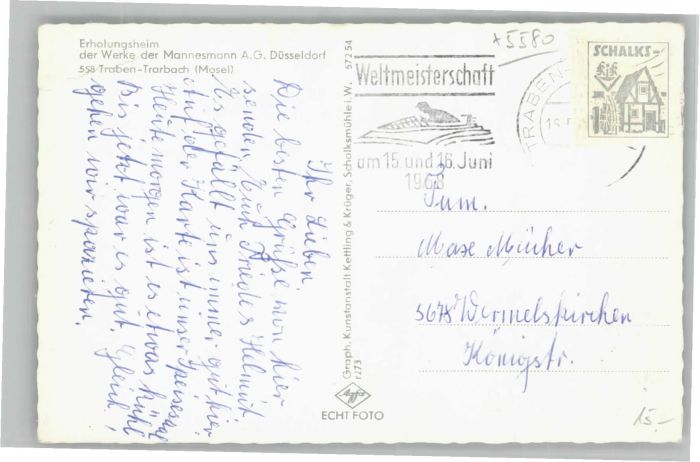 Erholungsheim
der Werke der Mannesmann A.G. Düsseldorf
558 Traben-Trarbach (Mosel)
Ihr Lieben,
Die besten Grüße von hier
senden Euch Friedel Helmut
Es gefällt uns immer gut hier
Auf der Karte ist unser Speisesaal
Heute morgen ist es etwas kühl
Bis jetzt war es gut. Gleich
gehen wir spazieren.
Graph. Kunstanstalt Kettling & Krüger, Schalksmühle i. W. 572 54
r 273
Agfa
ECHT FOTO
+5580
Weltmeisterschaft
am 15. und 16. Juni
1968
TRABEN-
SCHALKS-
KfK
Fam.
Max Mücher
5678 Wermelskirchen
Königstr.
15.-